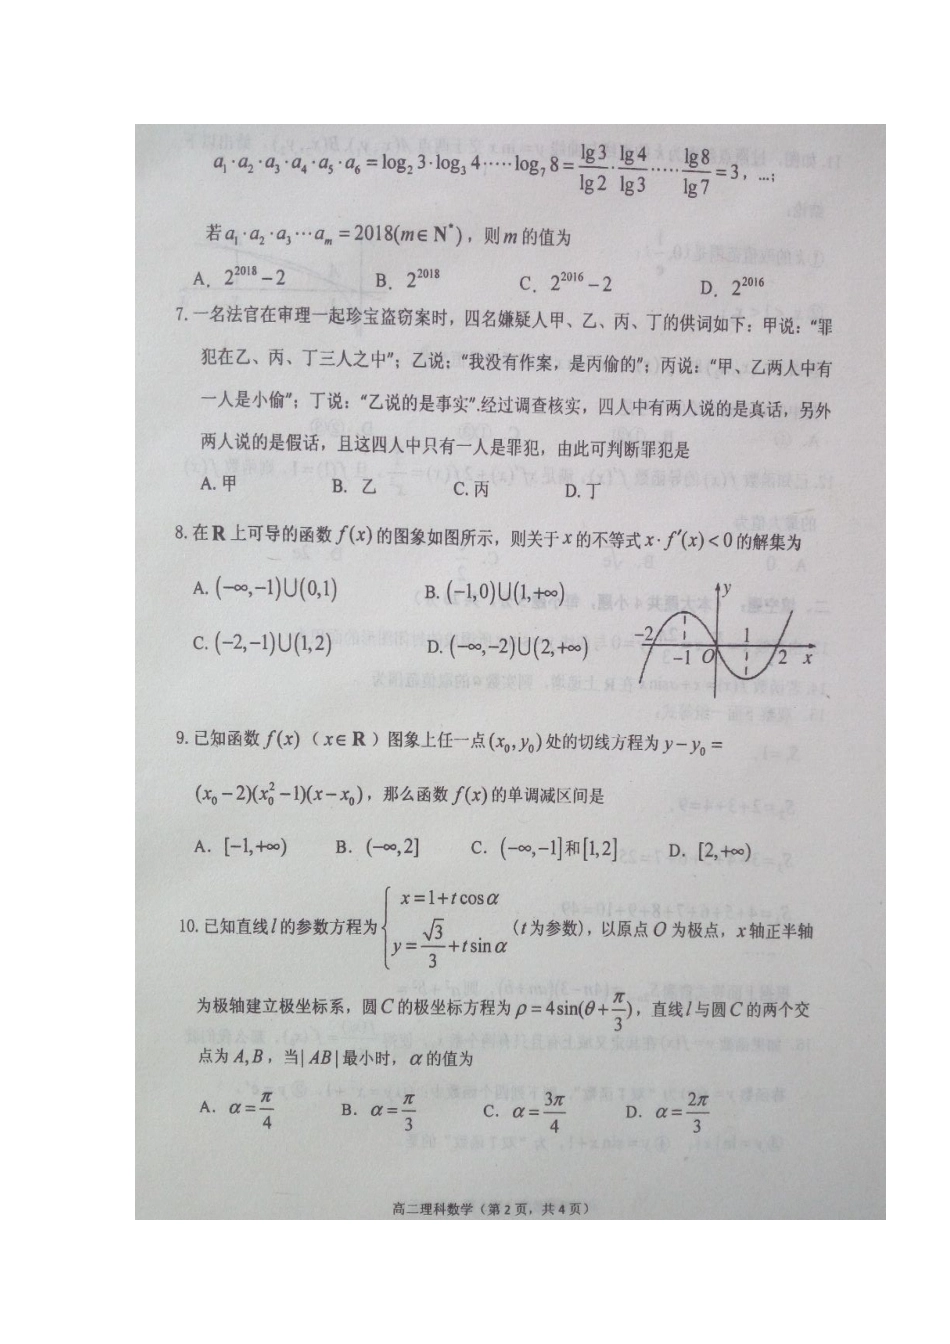 a₁·a₂·a₃·a₄·a₅·a₆ = log₂3·log₃4·····log₇8 = lg3/lg2·lg4/lg3·····lg8/lg7 = 3，…；
若a₁·a₂·a₃···aₘ = 2018(m∈N*)，则m的值为
A．2²⁰¹⁸－2 B．2²⁰¹⁸ C．2²⁰¹⁶－2 D．2²⁰¹⁶
7.一名法官在审理一起珍宝盗窃案时，四名嫌疑人甲、乙、丙、丁的供词如下：甲说：“罪
犯在乙、丙、丁三人之中”；乙说：“我没有作案，是丙偷的”；丙说：“甲、乙两人中有
一人是小偷”；丁说：“乙说的是事实”.经过调查核实，四人中有两人说的是真话，另外
两人说的是假话，且这四人中只有一人是罪犯，由此可判断罪犯是
A.甲 B．乙 C.丙 D.丁
8.在R上可导的函数f(x)的图象如图所示，则关于x的不等式x·f′(x)<0的解集为
A.(-∞,-1)∪(0,1) B.(-1,0)∪(1,+∞)
C.(-2,-1)∪(1,2) D.(-∞,-2)∪(2,+∞)
y
-2 1
-1 O 2 x
9.已知函数f(x)（x∈R）图象上任一点(x₀,y₀)处的切线方程为y－y₀ =
(x₀－2)(x₀²－1)(x－x₀)，那么函数f(x)的单调减区间是
A．[-1,+∞) B．(-∞,2] C．(-∞,-1]和[1,2] D．[2,+∞)
10.已知直线l的参数方程为{x=1+tcosα, y=√3/3+tsinα（t为参数），以原点O为极点，x轴正半轴
为极轴建立极坐标系，圆C的极坐标方程为ρ=4sin(θ+π/3)，直线l与圆C的两个交
点为A,B，当|AB|最小时，α的值为
A．α=π/4 B．α=π/3 C．α=3π/4 D．α=2π/3
高二理科数学（第2页，共4页）